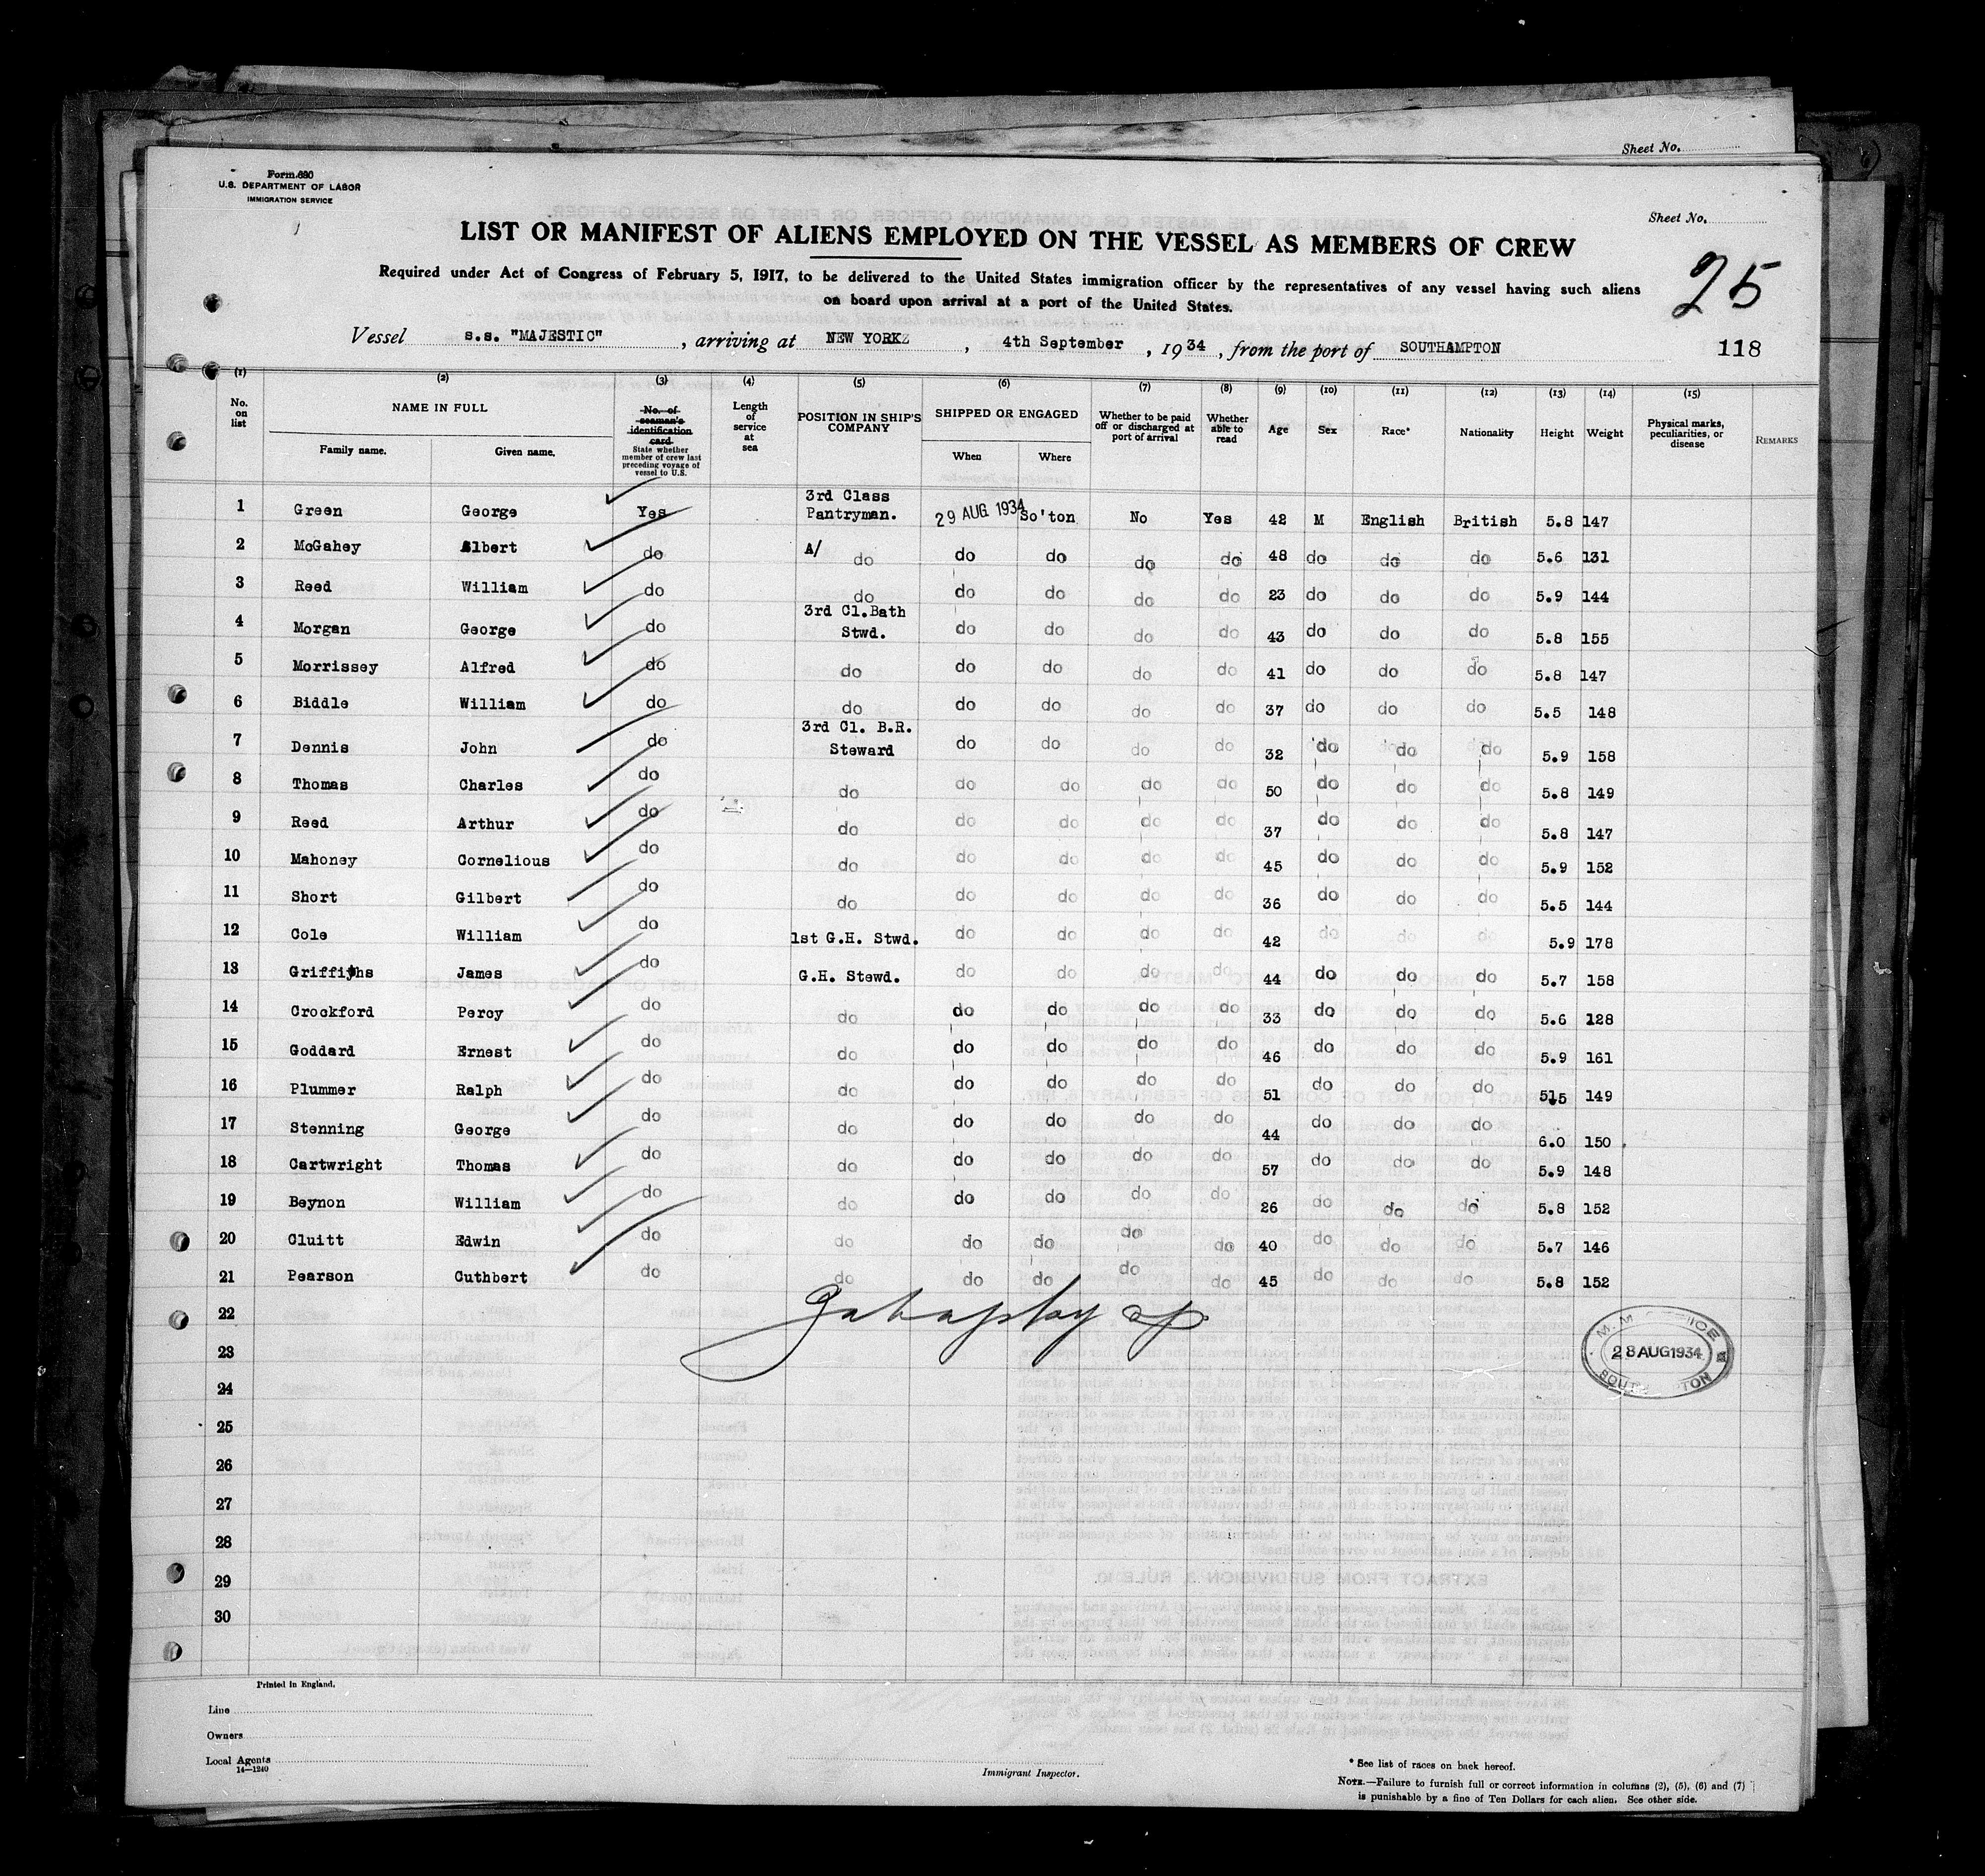 Sheet No.
Form 680
U.S. DEPARTMENT OF LABOR
IMMIGRATION SERVICE
Sheet No.
LIST OR MANIFEST OF ALIENS EMPLOYED ON THE VESSEL AS MEMBERS OF CREW
Required under Act of Congress of February 5, 1917, to be delivered to the United States immigration officer by the representatives of any vessel having such aliens
on board upon arrival at a port of the United States.
25
Vessel s.s. "MAJESTIC", arriving at NEW YORK, 4th September, 1934, from the port of SOUTHAMPTON
118
(1) (2) (3) (4) (5) (6) (7) (8) (9) (10) (11) (12) (13) (14) (15)
No. on list NAME IN FULL Family name. Given name. No. of seaman's identification card State whether member of crew last preceding voyage of vessel to U.S. Length of service at sea POSITION IN SHIP'S COMPANY SHIPPED OR ENGAGED When Where Whether to be paid off or discharged at port of arrival Whether able to read Age Sex Race* Nationality Height Weight Physical marks, peculiarities, or disease REMARKS
1 Green George Yes 3rd Class Pantryman. 29 AUG 1934 So'ton No Yes 42 M English British 5.8 147
2 McGahey Albert do A/ do do do do do 48 do do do 5.6 131
3 Reed William do do do do do do 23 do do do 5.9 144
4 Morgan George do 3rd Cl.Bath Stwd. do do do do 43 do do do 5.8 155
5 Morrissey Alfred do do do do do do 41 do do do 5.8 147
6 Biddle William do do do do do do 37 do do do 5.5 148
7 Dennis John do 3rd Cl. B.R. Steward do do do do 32 do do do 5.9 158
8 Thomas Charles do do do do do do 50 do do do 5.8 149
9 Reed Arthur do do do do do do 37 do do do 5.8 147
10 Mahoney Cornelious do do do do do do 45 do do do 5.9 152
11 Short Gilbert do do do do do do 36 do do do 5.5 144
12 Cole William do 1st G.H. Stwd. do do do do 42 do do do 5.9 178
13 Griffiths James do G.H. Stewd. do do do do 44 do do do 5.7 158
14 Crockford Percy do do do do do do 33 do do do 5.6 128
15 Goddard Ernest do do do do do do 46 do do do 5.9 161
16 Plummer Ralph do do do do do do 51 do do do 5.5 149
17 Stenning George do do do do do do 44 do do do 6.0 150
18 Cartwright Thomas do do do do do do 57 do do do 5.9 148
19 Beynon William do do do do do do 26 do do do 5.8 152
20 Cluitt Edwin do do do do do do 40 do do do 5.7 146
21 Pearson Cuthbert do do do do do do 45 do do do 5.8 152
22
23
28 AUG 1934
24
25
26
27
28
29
30
Printed in England.
Line
Owners
Local Agents
14—1240
Immigrant Inspector.
* See list of races on back hereof.
NOTE.—Failure to furnish full or correct information in columns (2), (5), (6) and (7)
is punishable by a fine of Ten Dollars for each alien. See other side.